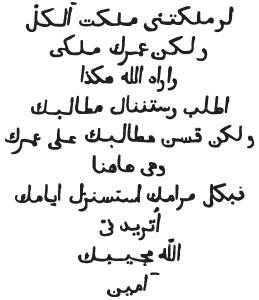 لو ملكتني ملكت الكل
ولكن عمرك ملكي
واراه الله هكذا
اطلب وستنال مطالبك
ولكن قس مطالبك على عمرك
وهي هاهنا
فبكل مرامك استستنزل ايامك
أتريدني
الله مجيبك
آمين